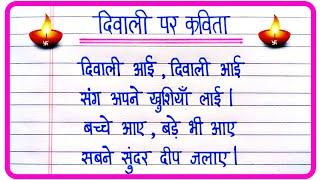 दिवाली पर कविता
दिवाली आई , दिवाली आई
संग अपने खुशियाँ लाई ।
बच्चे आए , बड़े भी आए
सबने सुंदर दीप जलाए ।